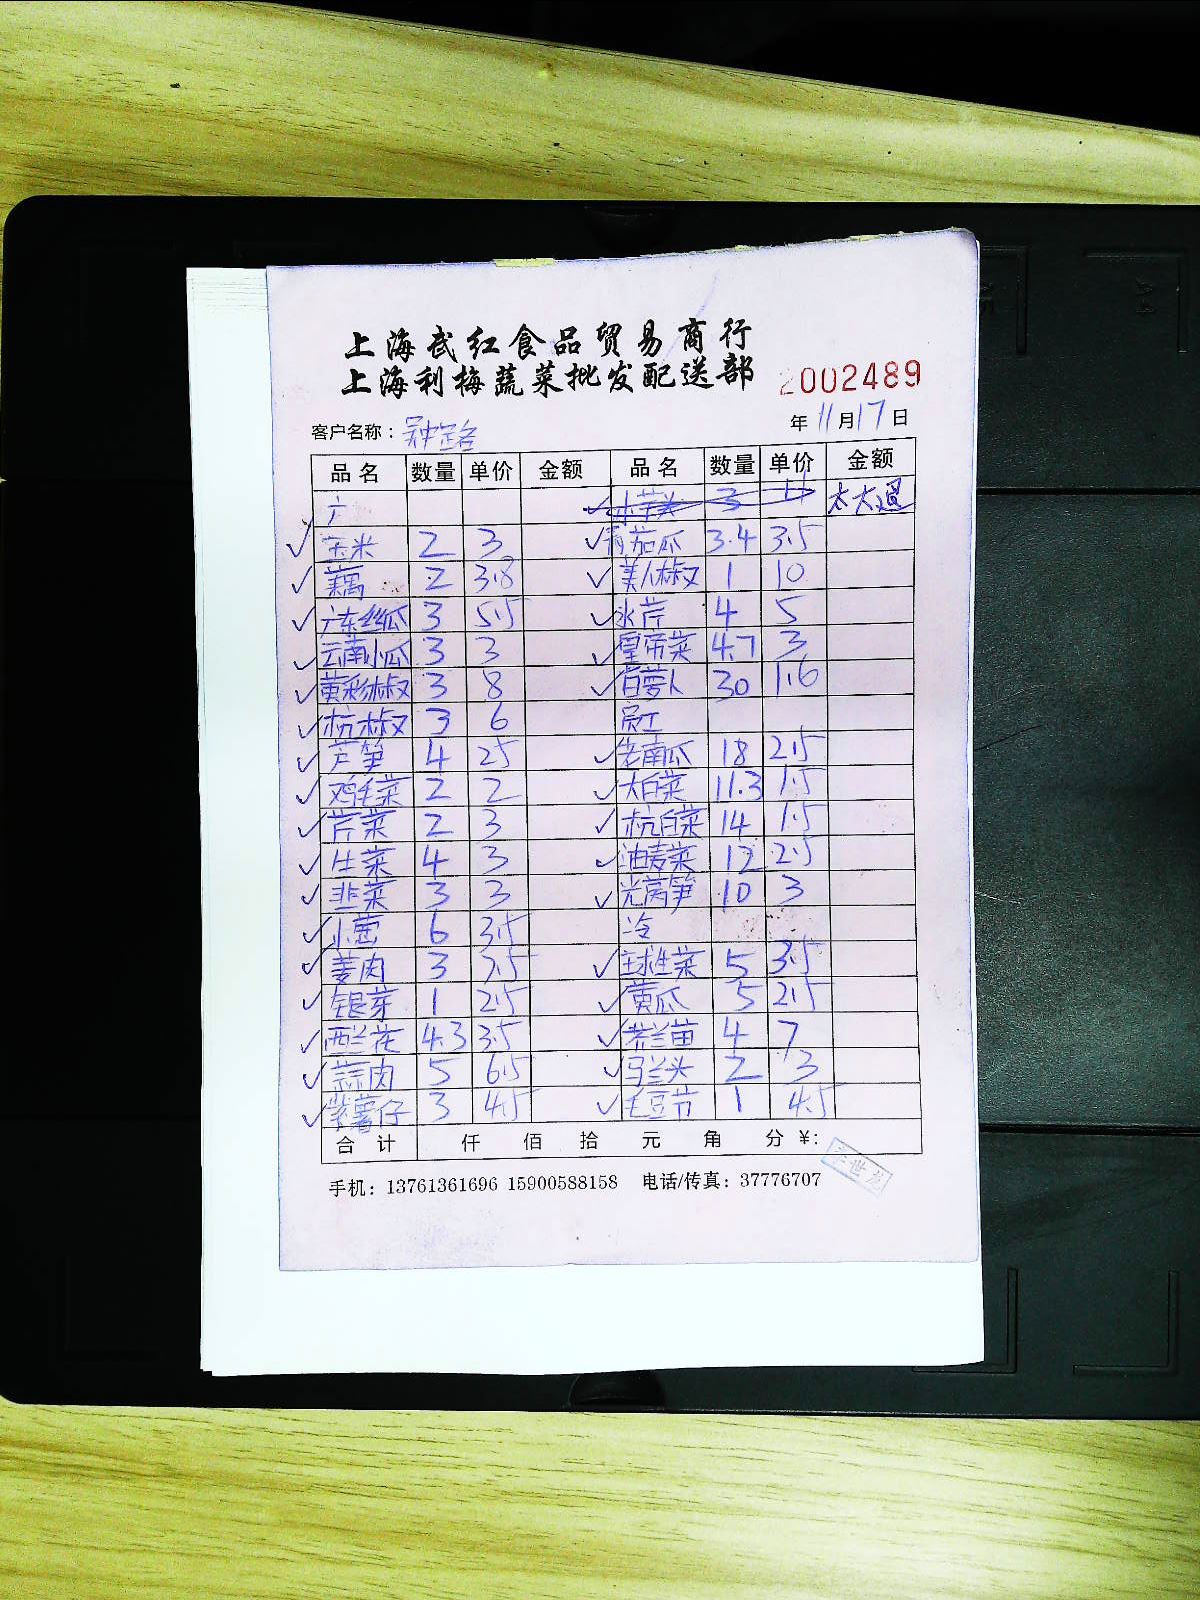 上海武红食品贸易商行
上海利梅蔬菜批发配送部 2002489
客户名称：吴中路 年 11月17日
品名 数量 单价 金额 品名 数量 单价 金额
广 小芋头 3 4 太大退
玉米 2 3 青茄瓜 3.4 3.5
藕 2 3.8 美人椒 1 10
广东丝瓜 3 5.5 水芹 4 5
云南小瓜 3 3 皇帝菜 4.7 3
黄彩椒 3 8 白萝卜 30 1.6
杭椒 3 6 员工
芦笋 4 25 老南瓜 18 2.5
鸡毛菜 2 2 大白菜 11.3 1.5
芹菜 2 3 杭白菜 14 1.5
生菜 4 3 油麦菜 12 2.5
韭菜 3 3 光莴笋 10 3
小葱 6 3.5 冷
姜肉 3 7.5 球生菜 5 3.5
银芽 1 2.5 黄瓜 5 2.5
西兰花 4.3 3.5 芥兰苗 4 7
蒜肉 5 6.5 马兰头 2 3
紫薯仔 3 4.5 毛豆节 1 4.5
合计 仟 佰 拾 元 角 分 ¥:
手机：13761361696 15900588158 电话/传真：37776707